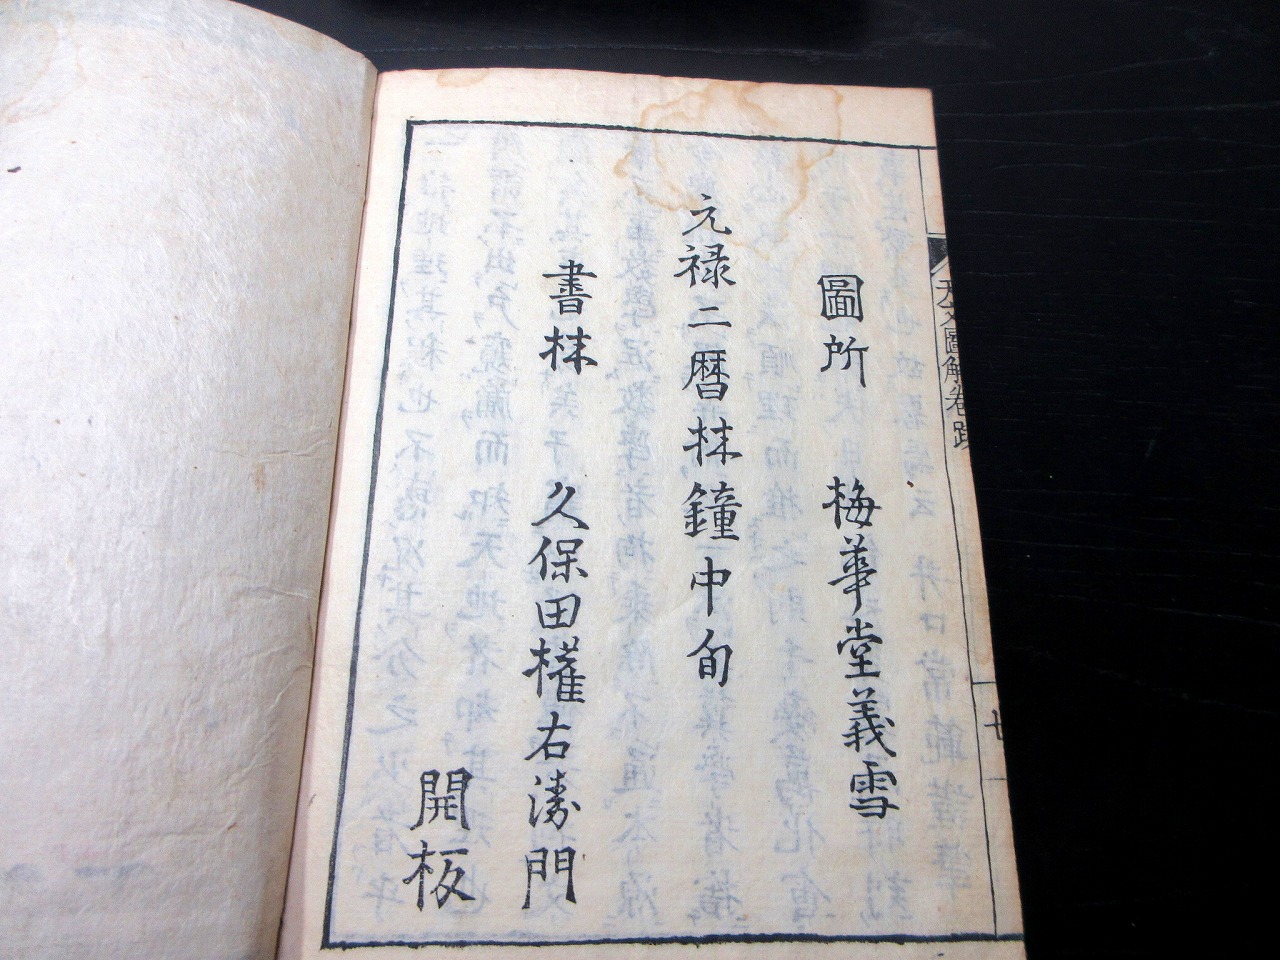 天文圖解卷跋
圖所 梅華堂義雪
元禄二暦林鐘中旬
書林 久保田權右衛門
開板